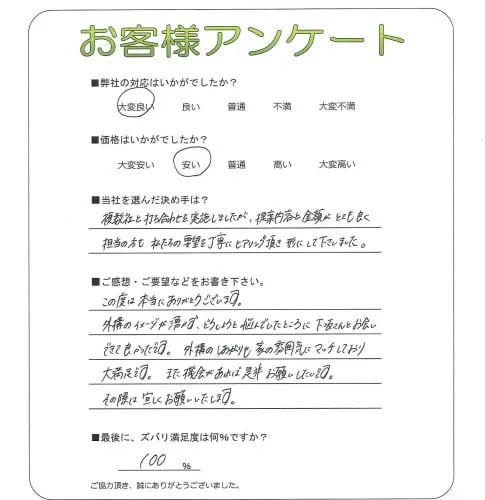 お客様アンケート
■弊社の対応はいかがでしたか？
大変良い 良い 普通 不満 大変不満
■価格はいかがでしたか？
大変安い 安い 普通 高い 大変高い
■当社を選んだ決め手は？
複数社と打ち合わせを実施しましたが、提案内容と金額がとても良く
担当の方も 私たちの要望を丁寧にヒアリング頂き 形にして下さいました。
■ご感想・ご要望などをお書き下さい。
この度は本当にありがとうございます。
外構のイメージが湧かず、どうしようと悩んでいたところに 下坂さんとお会い
できて良かったです。 外構のしあがりも 家の雰囲気にマッチしており
大満足です。 また機会があれば是非お願いしたいです。
その際は宜しくお願いいたします。
■最後に、ズバリ満足度は何%ですか？
100 %
ご協力頂き、誠にありがとうございました。